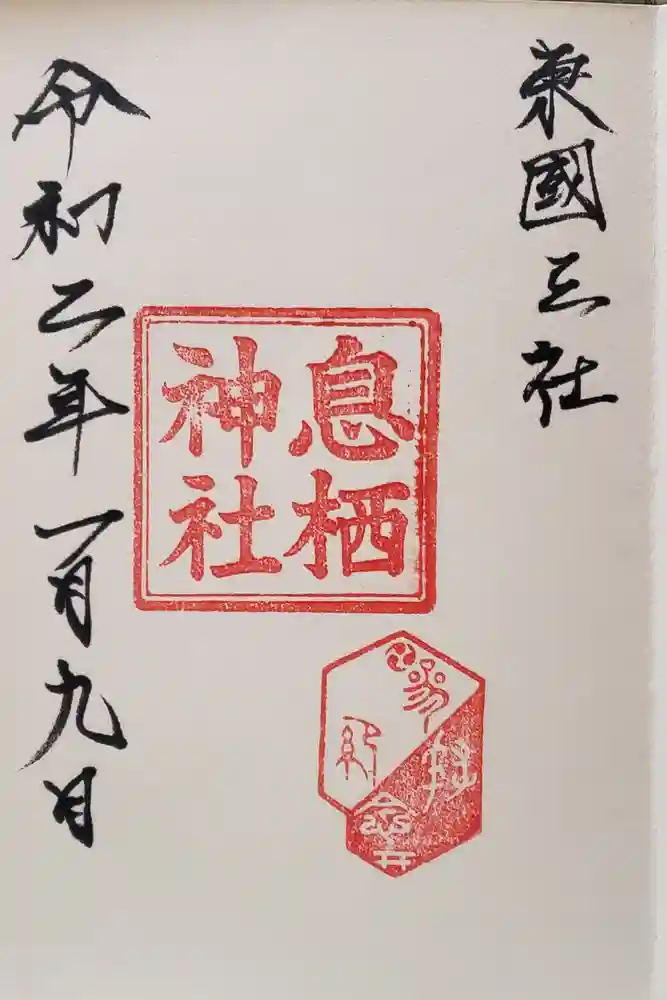 東國三社
息栖
神社
令和二年一月九日